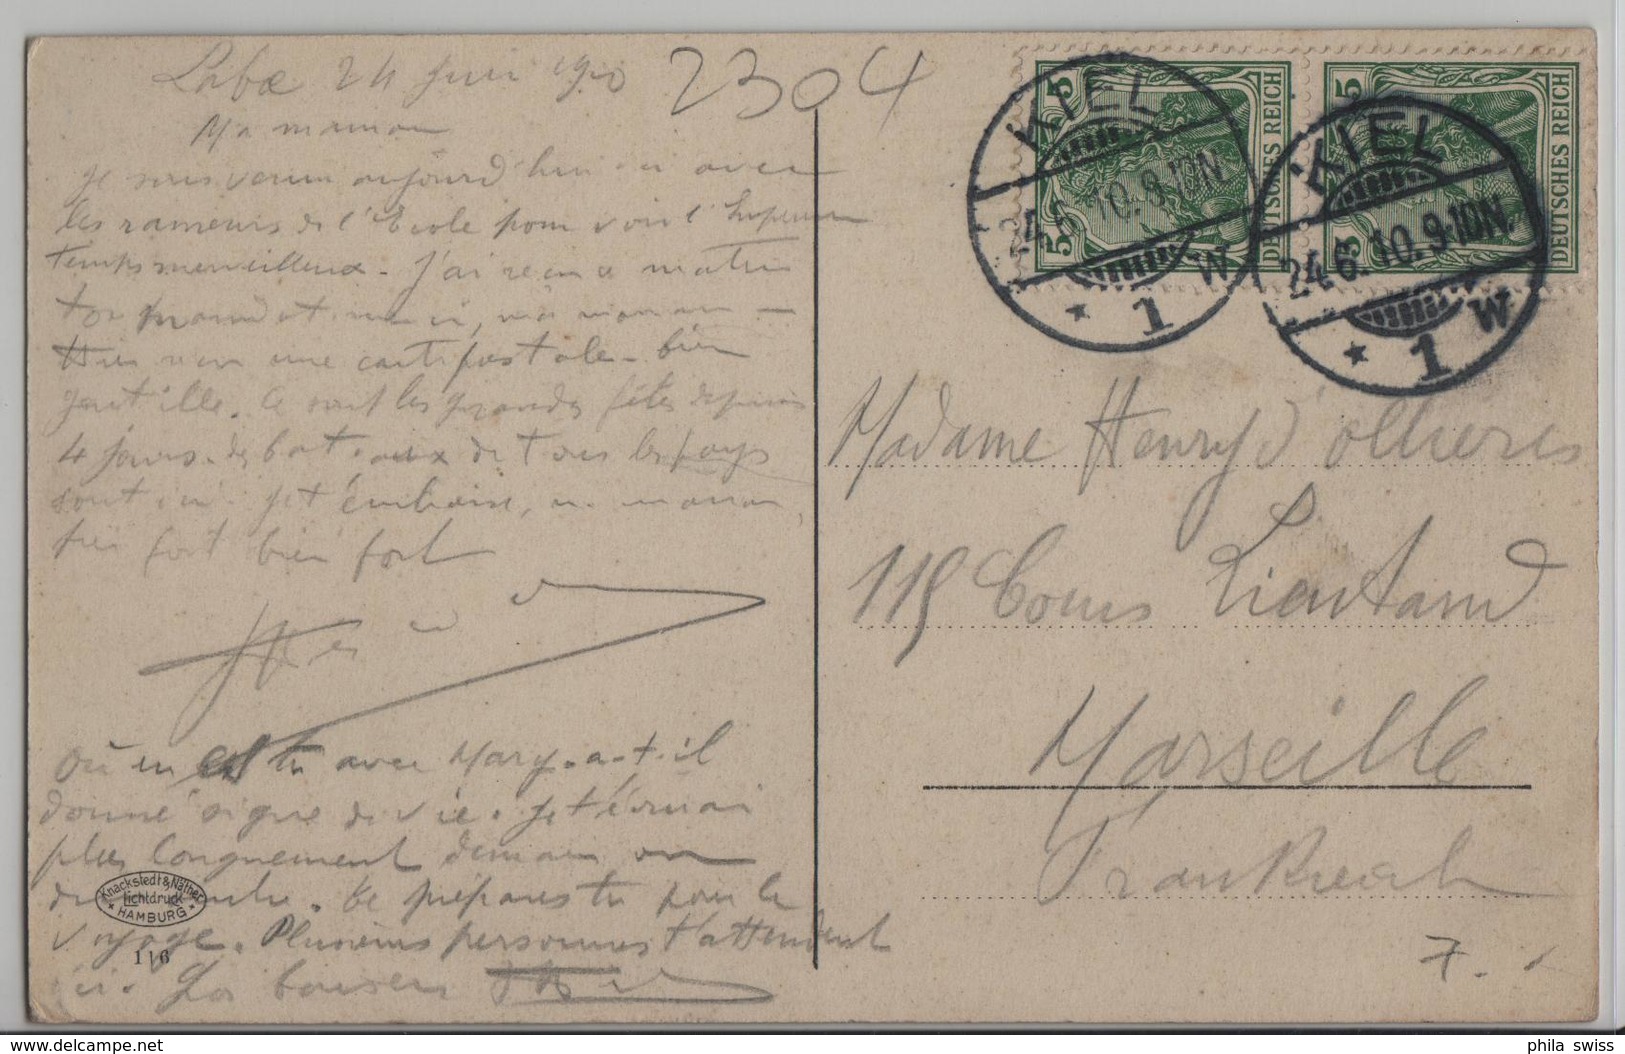 Laboe 24 Juin 1910
2304
Ma maman
Je suis venu aujourd'hui ici avec
les rameurs de l'Ecole pour voir l'
temps merveilleux. J'ai reçu ce matin
ton mandat merci, ma maman —
Hier une carte postale. bien
gentille. Ce sont les grandes fêtes depuis
4 jours. des bateaux de tous les pays
sont ici. Je t'embrasse, ma maman,
fort bien fort
Où en es tu avec Mary. a-t-il
donné signe de vie. Je t'écrirai
plus longuement demain ou
dimanche. te prépares tu pour le
voyage. Plusieurs personnes t'attendent
ici. baisers
Knackstedt & Näther
Lichtdruck
HAMBURG
116
KIEL
24.6.10.9-10N.
* 1 W
KIEL
24.6.10.9-10N.
* 1 W
5 5
DEUTSCHES REICH
5 5
DEUTSCHES REICH
Madame Henry d'Ollières
119 Cours Lieutaud
Marseille
Frankreich
7.
phila swiss